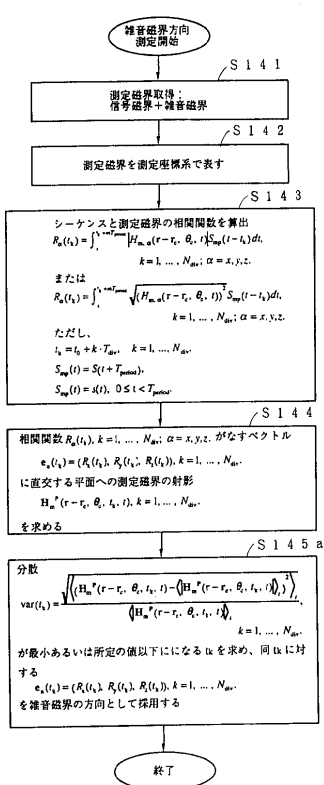 雑音磁界方向
測定開始
S141
測定磁界取得:
信号磁界+雑音磁界
S142
測定磁界を測定座標系で表す
S143
シーケンスと測定磁界の相関関数を算出
R_α(t_k)=∫_{t_k}^{t_k+mT_period} |H_{m,α}(r−r_c, θ_c, t)|S_mp(t−t_k)dt,
k=1, ..., N_div; α=x,y,z.
または
R_α(t_k)=∫_{t_k}^{t_k+mT_period} √(H_{m,α}(r−r_c, θ_c, t))² S_mp(t−t_k)dt,
k=1, ..., N_div; α=x,y,z.
ただし、
t_k=t_0+k·T_div, k=1, ..., N_div.
S_mp(t)=S(t+T_period),
S_mp(t)=s(t), 0≤t<T_period.
S144
相関関数 R_α(t_k), k=1, ..., N_div; α=x,y,z. がなすベクトル
e_n(t_k)=(R_x(t_k), R_y(t_k), R_z(t_k)), k=1, ..., N_div.
に直交する平面への測定磁界の射影
H_m^P(r−r_c, θ_c, t_k, t), k=1, ..., N_div.
を求める
S145a
分散
var(t_k)=√⟨(H_m^P(r−r_c, θ_c, t_k, t)−⟨|H_m^P(r−r_c, θ_c, t_k, t)|⟩_t)²⟩_t / ⟨|H_m^P(r−r_c, θ_c, t_k, t)|⟩_t,
k=1, ..., N_div.
が最小あるいは所定の値以下にになる tk を求め、同 tk に対
する
e_n(t_k)=(R_x(t_k), R_y(t_k), R_z(t_k)), k=1, ..., N_div.
を雑音磁界の方向として採用する
終了